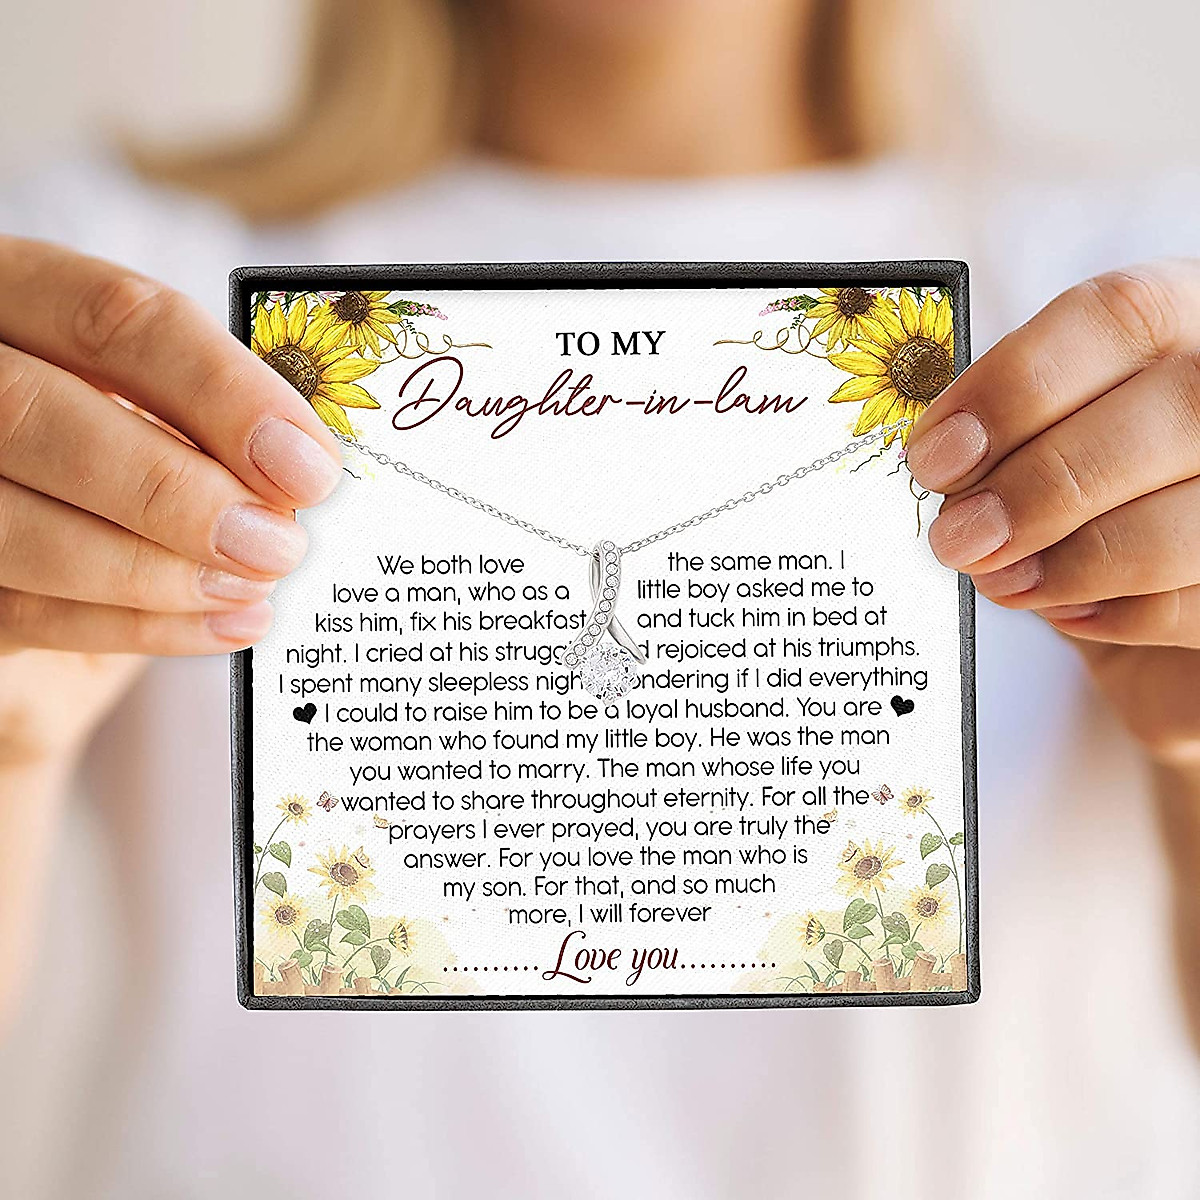 TO MY
Daughter-in-law
We both love the same man. I
love a man, who as a little boy asked me to
kiss him, fix his breakfast and tuck him in bed at
night. I cried at his strugg d rejoiced at his triumphs.
I spent many sleepless nigh ondering if I did everything
I could to raise him to be a loyal husband. You are
the woman who found my little boy. He was the man
you wanted to marry. The man whose life you
wanted to share throughout eternity. For all the
prayers I ever prayed, you are truly the
answer. For you love the man who is
my son. For that, and so much
more, I will forever
..........Love you..........